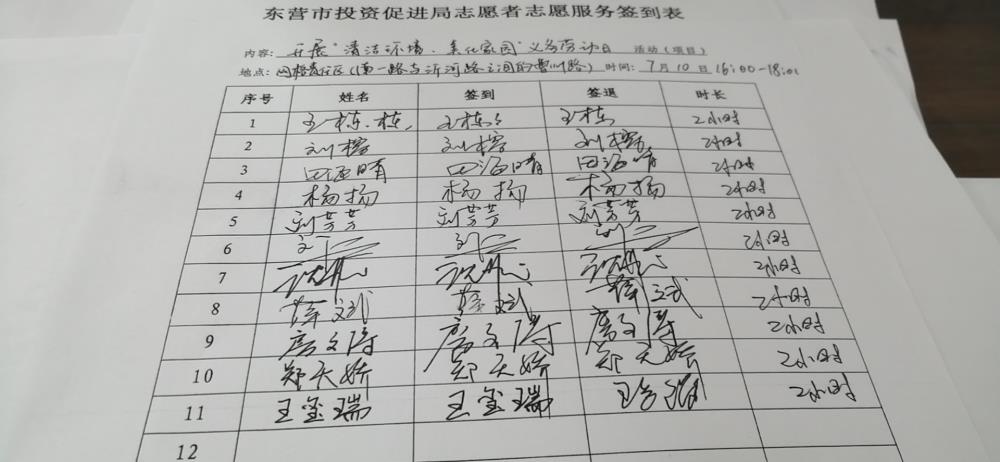 东营市投资促进局志愿者志愿服务签到表
内容: 开展"清洁环境、美化家园"义务劳动日 活动(项目)
地点: 网格责任区(南一路与沂河路之间的曹州路) 时间: 7月10日 16:00-18:00
序号 姓名 签到 签退 时长
1 王栋栋 王栋栋 王栋 2小时
2 刘榕 刘榕 刘榕 2小时
3 田海晴 田海晴 田海晴 2小时
4 杨扬 杨扬 杨扬 2小时
5 刘芳芳 刘芳芳 刘芳芳 2小时
6 2小时
7 2小时
8 2小时
9 2小时
10 郑天娇 郑天娇 郑天娇 2小时
11 王玺瑞 王玺瑞 王玺瑞 2小时
12